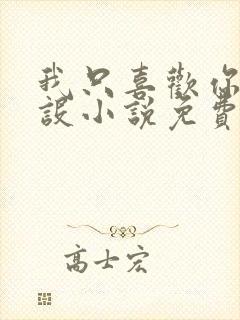 我只喜歡你
設小說免費
高士宏